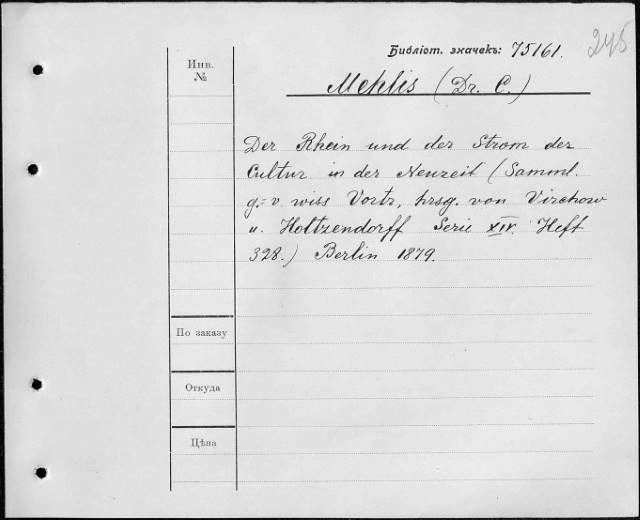 245
Библіот. значекъ: 75161.
Инв.
№
Mehlis (Dr. C.)
Der Rhein und der Strom der
Cultur in der Neuzeit (Samml.
g.-v. wiss Vortr, hrsg. von Virchow
u. Holtzendorff Serie XIV. Heft
328.) Berlin 1879.
По заказу
Откуда
Цѣна